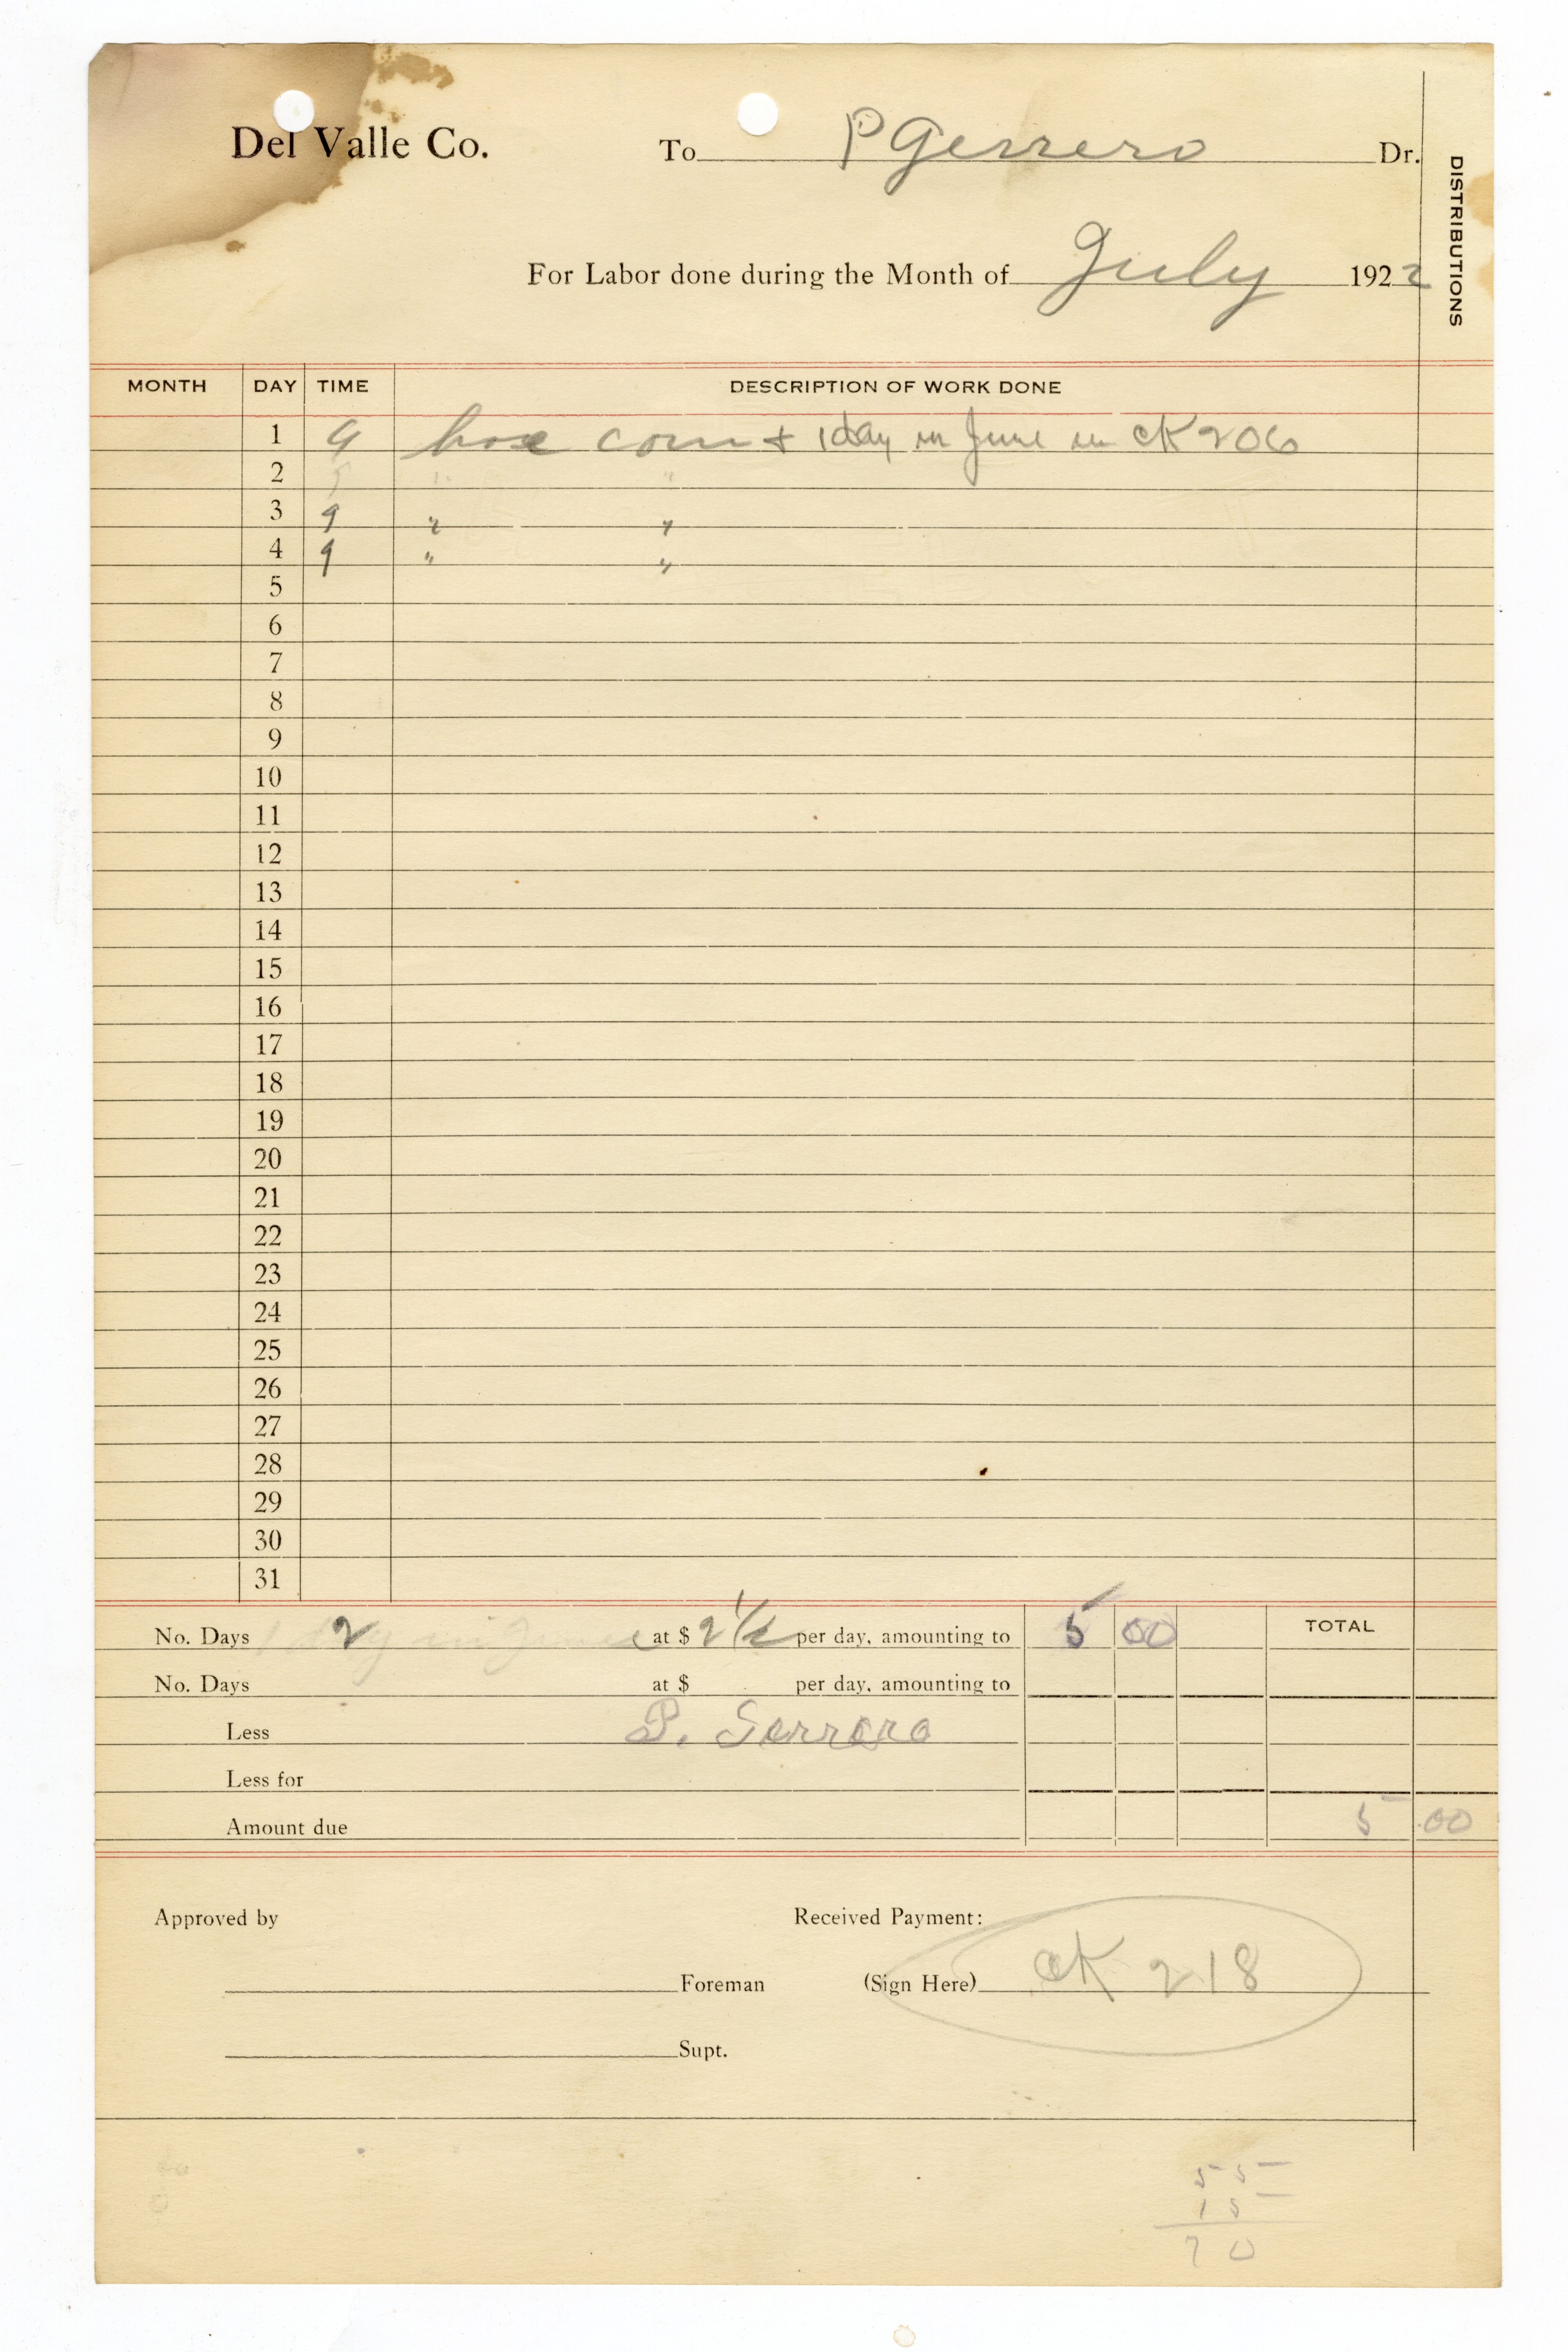 Del Valle Co. To P Gerrero Dr.
DISTRIBUTIONS
For Labor done during the Month of July 1922
MONTH DAY TIME DESCRIPTION OF WORK DONE
1 9 hoe corn + 1 day in June in CK 206
2 " "
3 9 " "
4 9 " "
5
6
7
8
9
10
11
12
13
14
15
16
17
18
19
20
21
22
23
24
25
26
27
28
29
30
31
No. Days 2 at $ 2 1/2 per day, amounting to 5 00 TOTAL
No. Days at $ per day, amounting to
Less P. Gerrero
Less for
Amount due 5 00
Approved by Received Payment:
Foreman (Sign Here) CK 218
Supt.
55
15
70